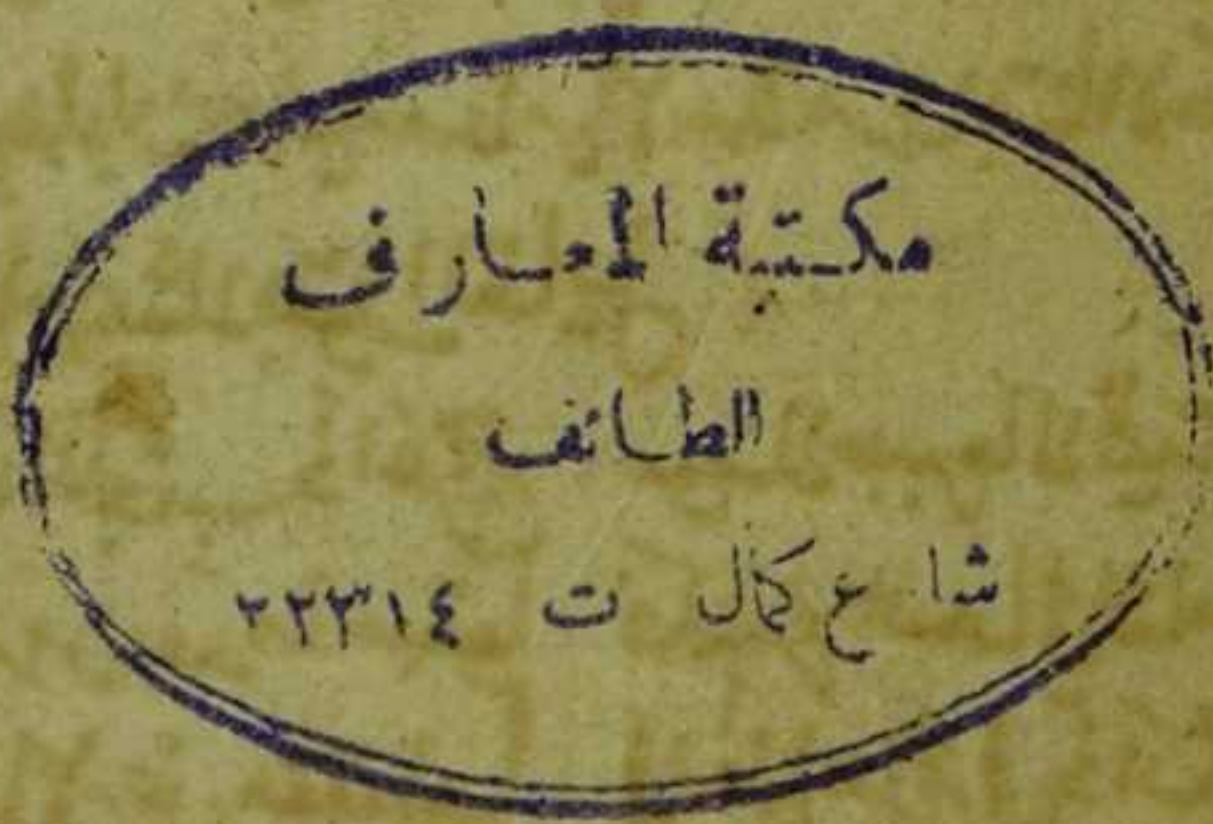 مكتبة المعارف
الطائف
شا ع كمال ت ٢٢٣١٤